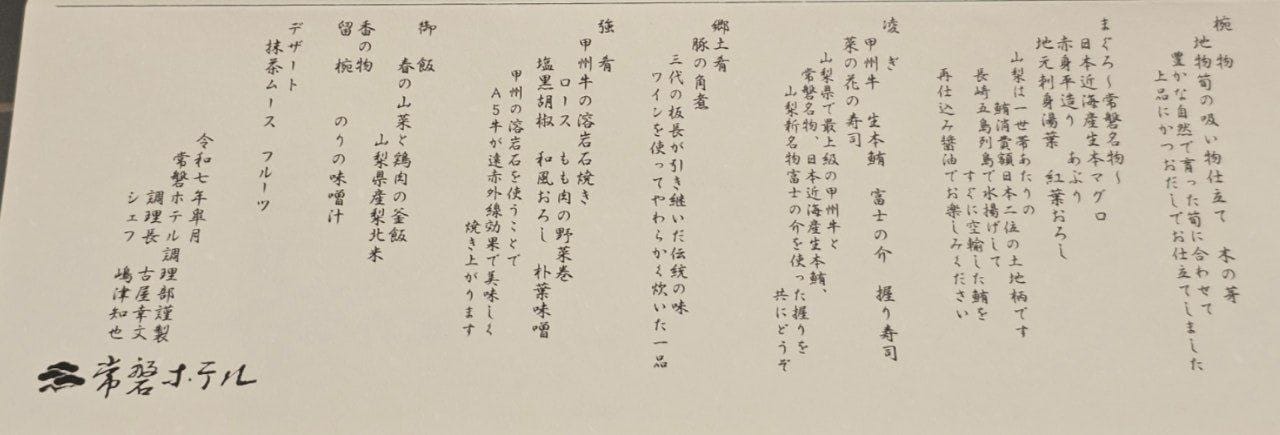 椀 物
地物筍の吸い物仕立て 木の芽
豊かな自然で育った筍に合わせて
上品にかつおだしでお仕立てしました
まぐろ～常磐名物～
日本近海産生本マグロ
赤身平造り あぶり
地元刺身湯葉 紅葉おろし
山梨は一世帯あたりの
鮪消費額日本二位の土地柄です
長崎五島列島で水揚げして
すぐに空輸した鮪を
再仕込み醤油でお楽しみください
凌 ぎ
甲州牛 生本鮪 富士の介 握り寿司
菜の花の寿司
山梨県で最上級の甲州牛と
常磐名物、日本近海産生本鮪、
山梨新名物富士の介を使った握りを
共にどうぞ
郷土肴
豚の角煮
三代の板長が引き継いだ伝統の味
ワインを使ってやわらかく炊いた一品
強 肴
甲州牛の溶岩石焼き
ロース もも肉の野菜巻
塩黒胡椒 和風おろし 朴葉味噌
甲州の溶岩石を使うことで
A5牛が遠赤外線効果で美味しく
焼き上がります
御 飯
春の山菜と鶏肉の釜飯
山梨県産梨北米
香の物
留 椀 のりの味噌汁
デザート
抹茶ムース フルーツ
令和七年皐月
常磐ホテル調理部謹製
調理長 古屋幸文
シェフ 嶋津知也
常磐ホテル